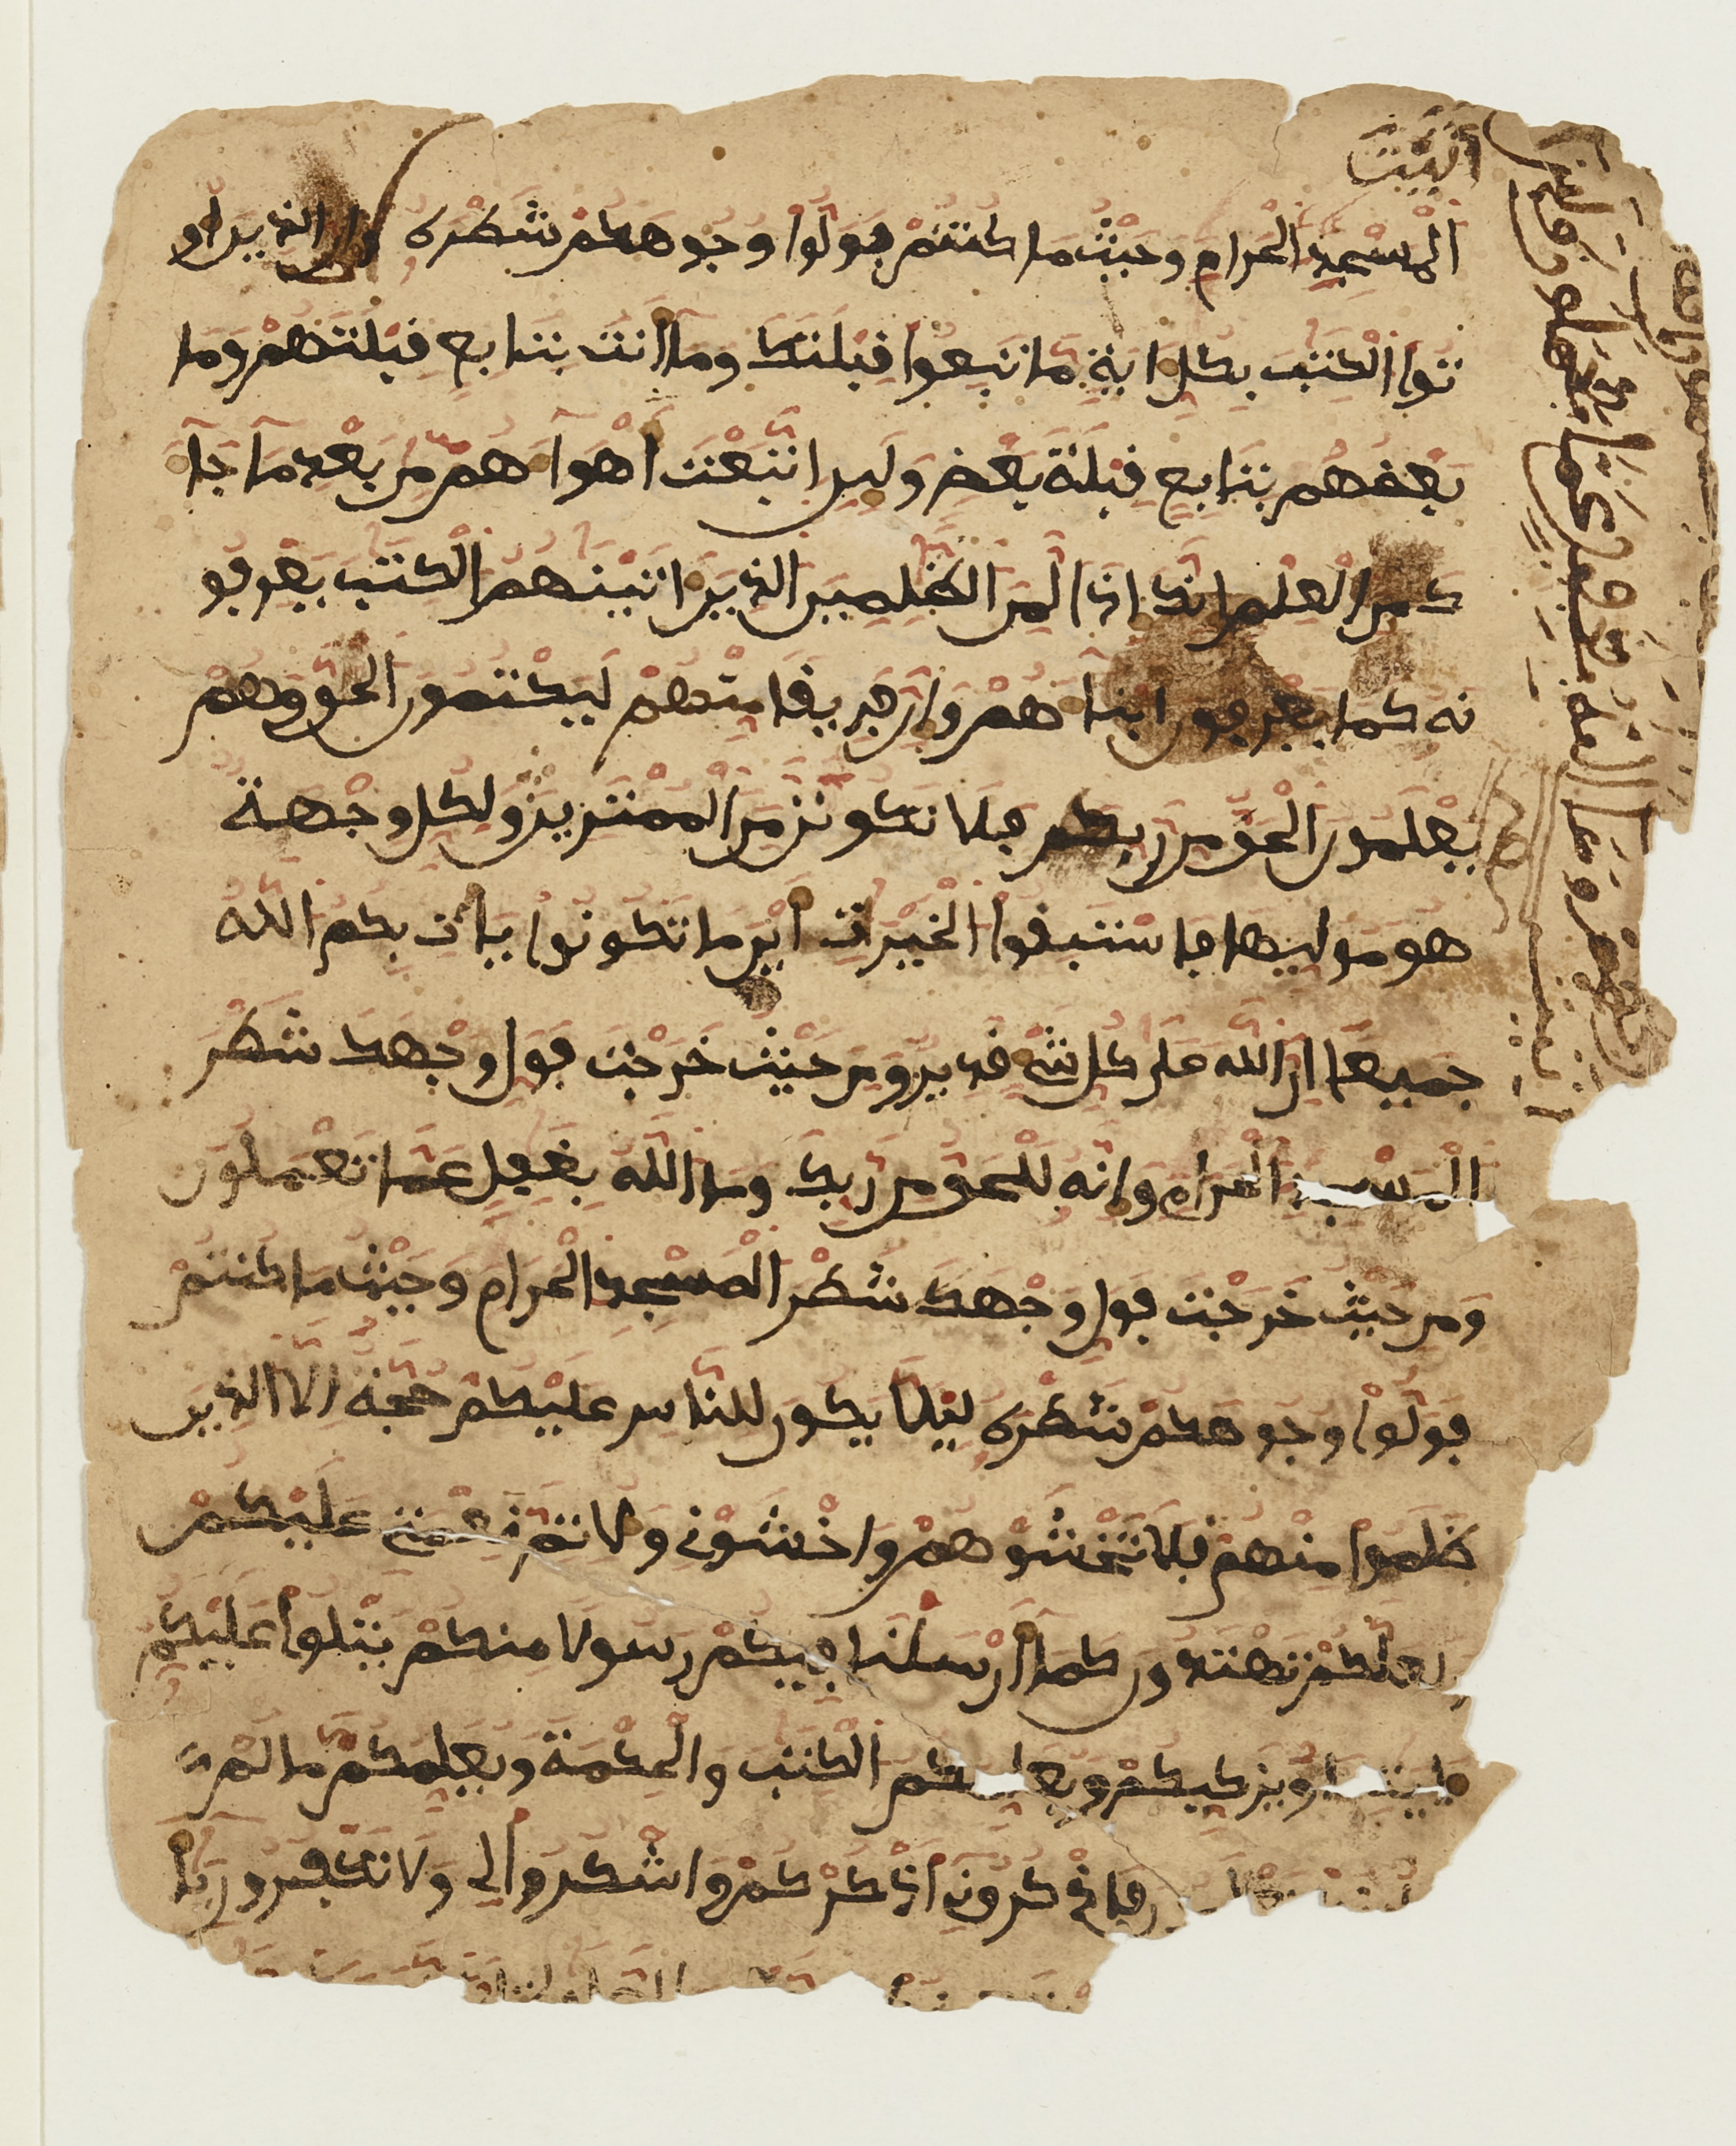 اتيت
المسجد الحرام وحيث ما كنتم فولوا وجوهكم شطره وان الذين او
توا الكتب بكل اية ما تبعوا قبلتك وما انت بتابع قبلتهم وما
بعضهم بتابع قبلة بعض ولين اتبعت اهوآهم من بعد ما جآ
ك من العلم انك اذا لمن الظلمين الذين اتينهم الكتب يعرفو
نه كما يعرفون ابنآهم وان فريقا منهم ليكتمون الحق وهم
يعلمون الحق من ربكم فلا تكونن من الممترين ولكل وجهة
هو موليها فاستبقوا الخيرات اين ما تكونوا يات بكم الله
جميعا ان الله على كل شيء قدير ومن حيث خرجت فول وجهك شطر
المسجد الحرام وانه للحق من ربك وما الله بغفل عما تعملون
ومن حيث خرجت فول وجهك شطر المسجد الحرام وحيث ما كنتم
فولوا وجوهكم شطره ليلا يكون للناس عليكم حجة الا الذين
ظلموا منهم فلا تخشوهم واخشوني ولاتم نعمتي عليكم
ولعلكم تهتدون كما ارسلنا فيكم رسولا منكم يتلوا عليكم
ايتنا ويزكيكم ويعلمكم الكتب والحكمة ويعلمكم ما لم
فاذكروني اذكركم واشكروا لي ولا تكفرون يآ
ربهم وما الله بغفل عما يعملون ولين